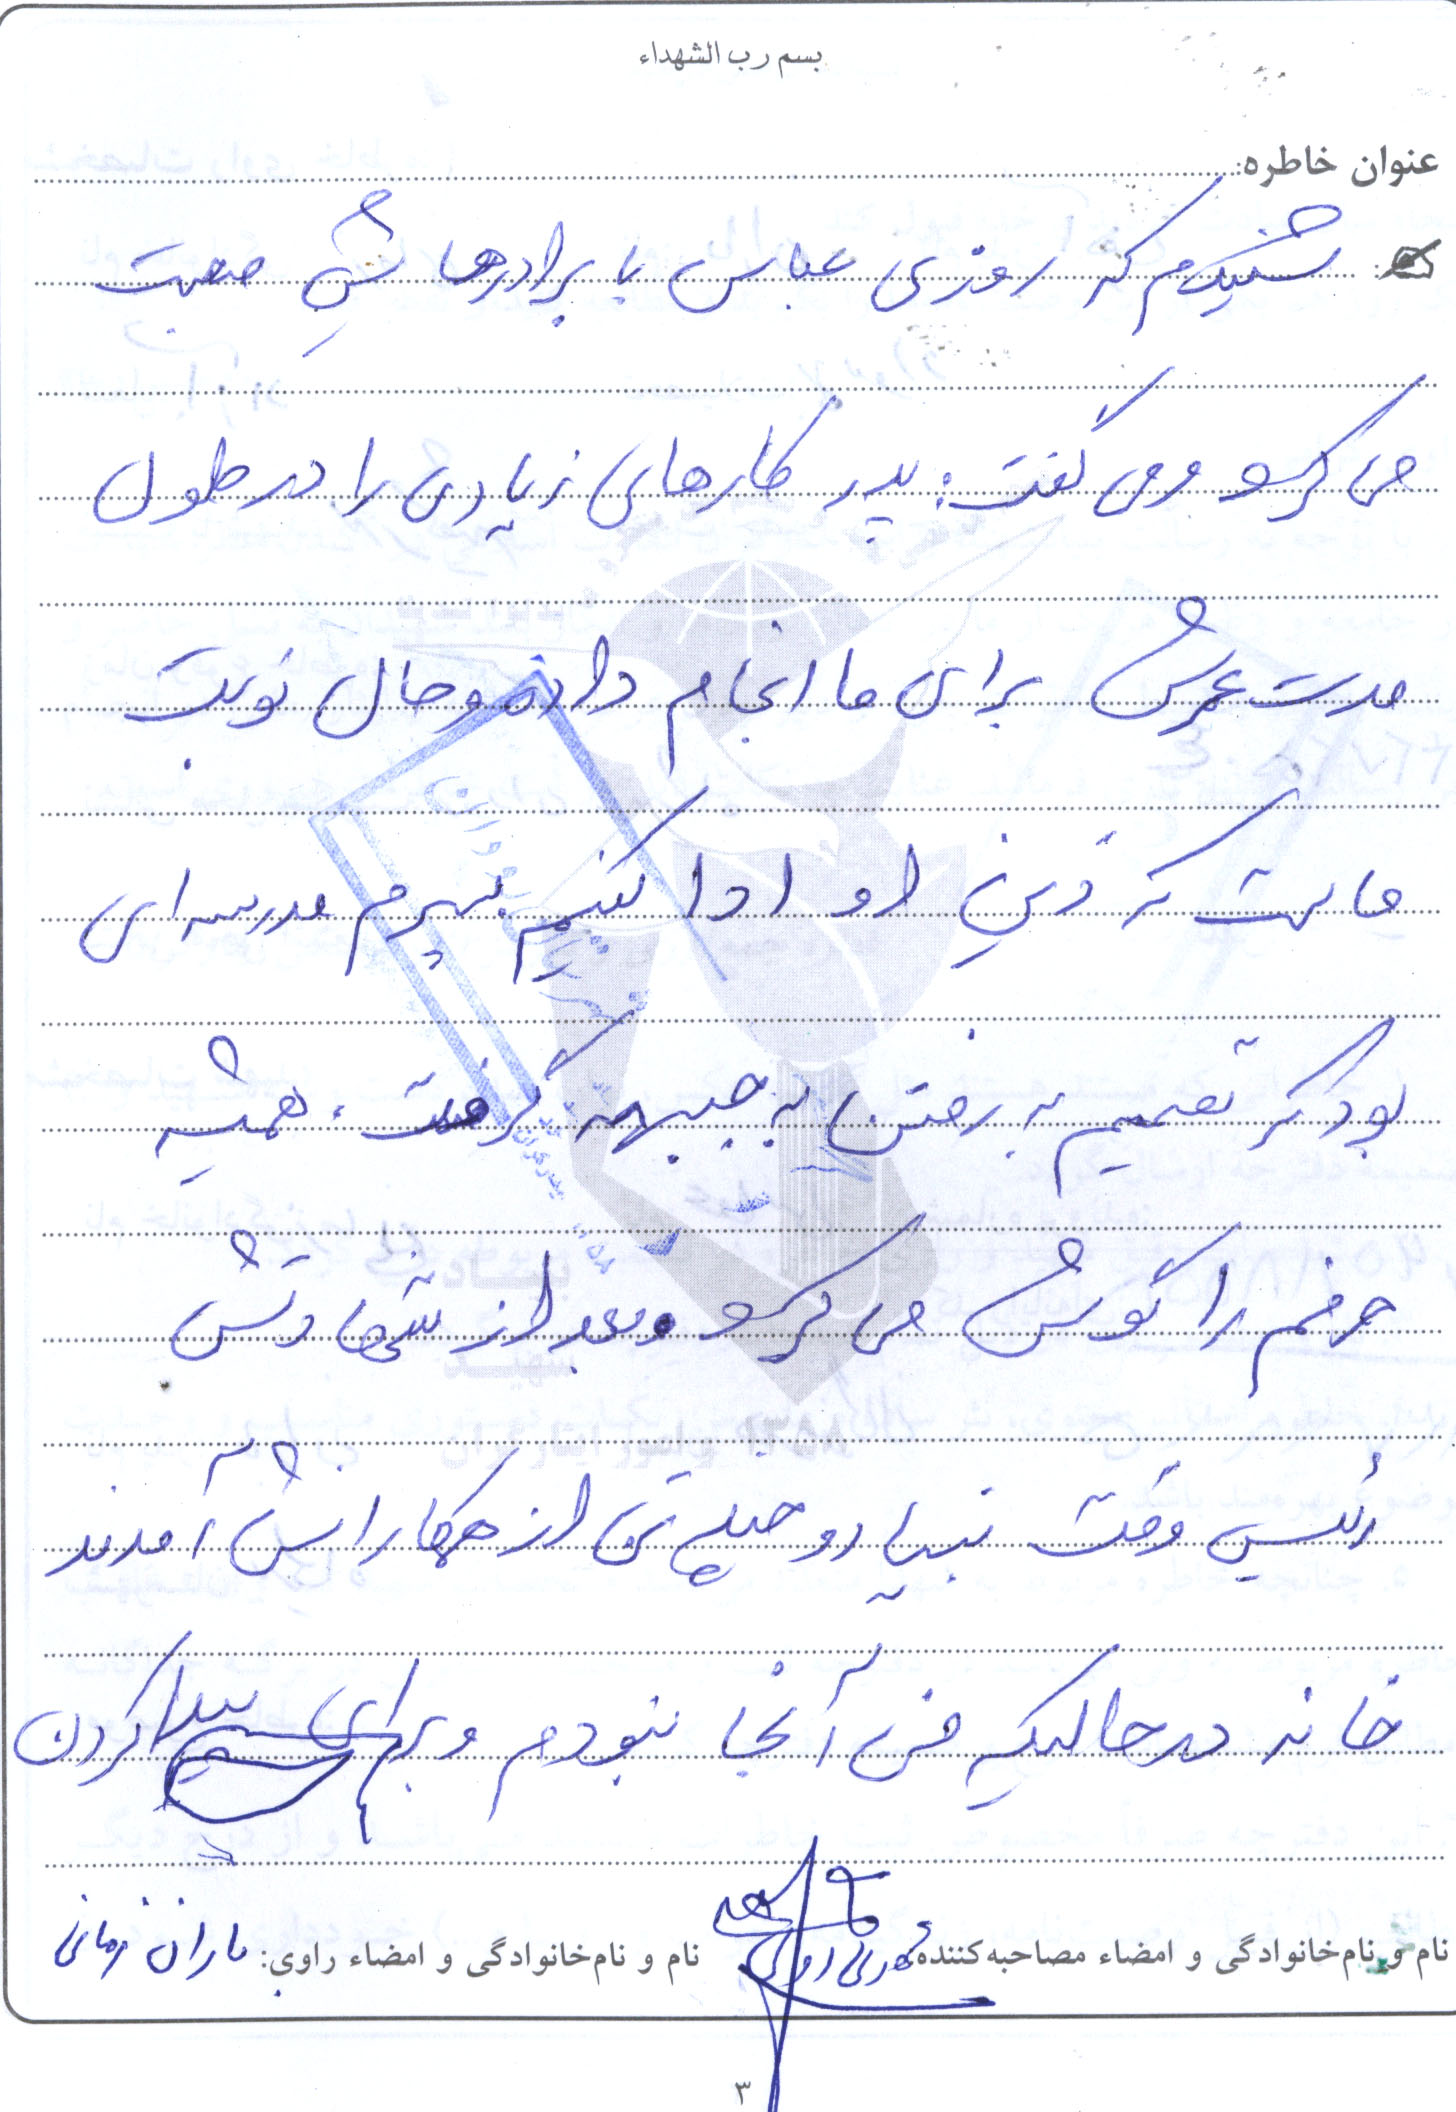 بسم رب الشهداء
عنوان خاطره:
شنیدم که روزی عباس با برادرهایش صحبت
می کرد و می گفت: پدر کارهای زیادی را در طول
مدت عمرش برای ما انجام داده و حال نوبت
ماست که دین او ادا کنیم پسرم مدرسه ای
بود که تصمیم به رفتن به جبهه گرفت. همیشه
حرفم را گوش می کرد و بعد از شهادتش
رئیس وقت بنیاد و چند تن از همکارانش آمدند
خانه در حالیکه من آنجا نبودم و برای پیدا کردن
نام و نام‌خانوادگی و امضاء مصاحبه‌کننده: نام و نام‌خانوادگی و امضاء راوی: باران زمانی
۳